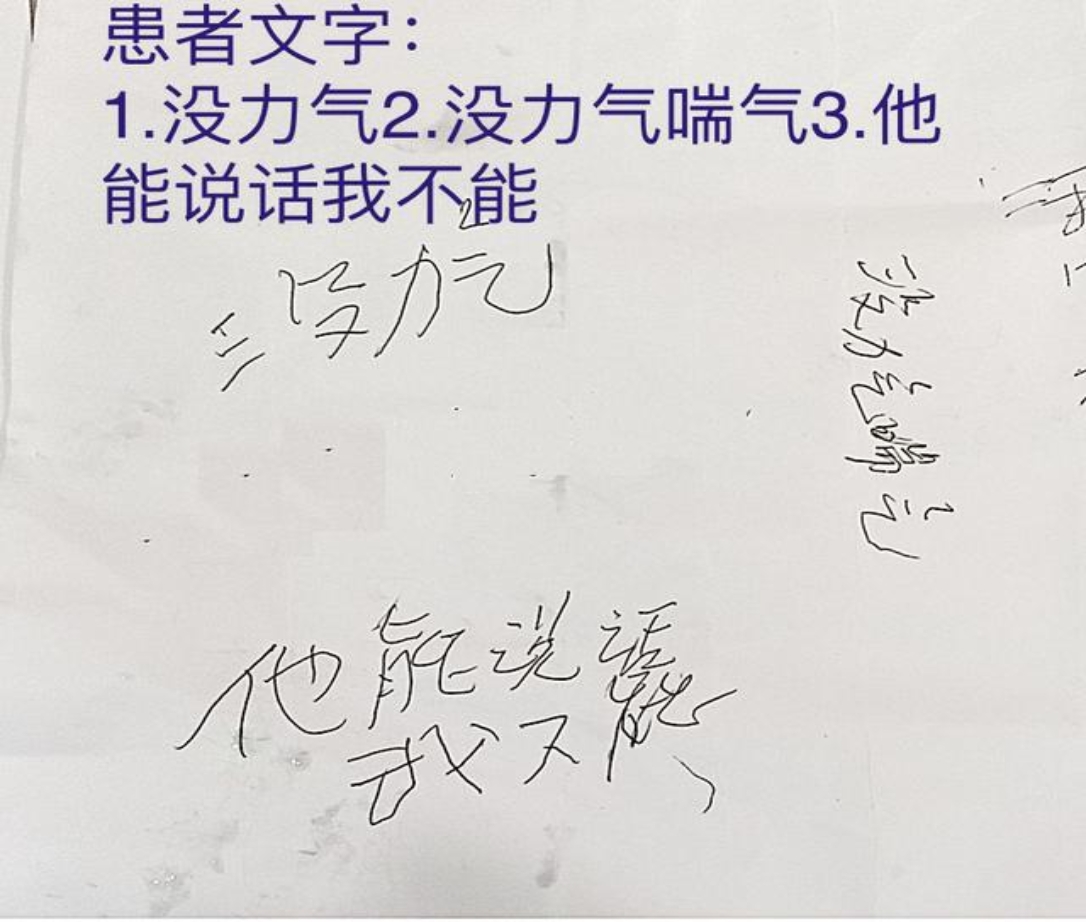 患者文字：
1.没力气2.没力气喘气3.他
能说话我不能
没力气
没力气喘气
他能说话
我不能